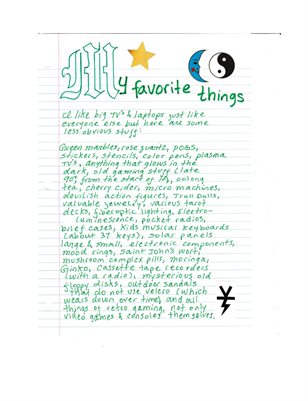 My favorite
things
I like big TV's & laptops just like
everyone else but here are some
less obvious stuff:
Green marbles, rose quartz, POGS,
stickers, stencils, color pens, plasma
TV's, anything that glows in the
dark, old gaming stuff (late
90s from the start of IA, oolong
tea, cherry cider, micro machines,
devilish action figures, Troll Dolls,
valuable jewelry, various tarot
decks, fiberoptic lighting, Electro-
luminescence, pocket radios,
brief cases, Kids musical keyboards
(about 37 keys), solar panels
large & small, electronic components,
mood rings, Saint John's wort,
mushroom complex pills, moringa,
Ginko, Cassette tape recorders
(with a radio), mysterious old
floppy disks, outdoor sandals
that do not use velcro (which
wears down over time, and all
things of retro gaming, not only
video games & consoles themselves.